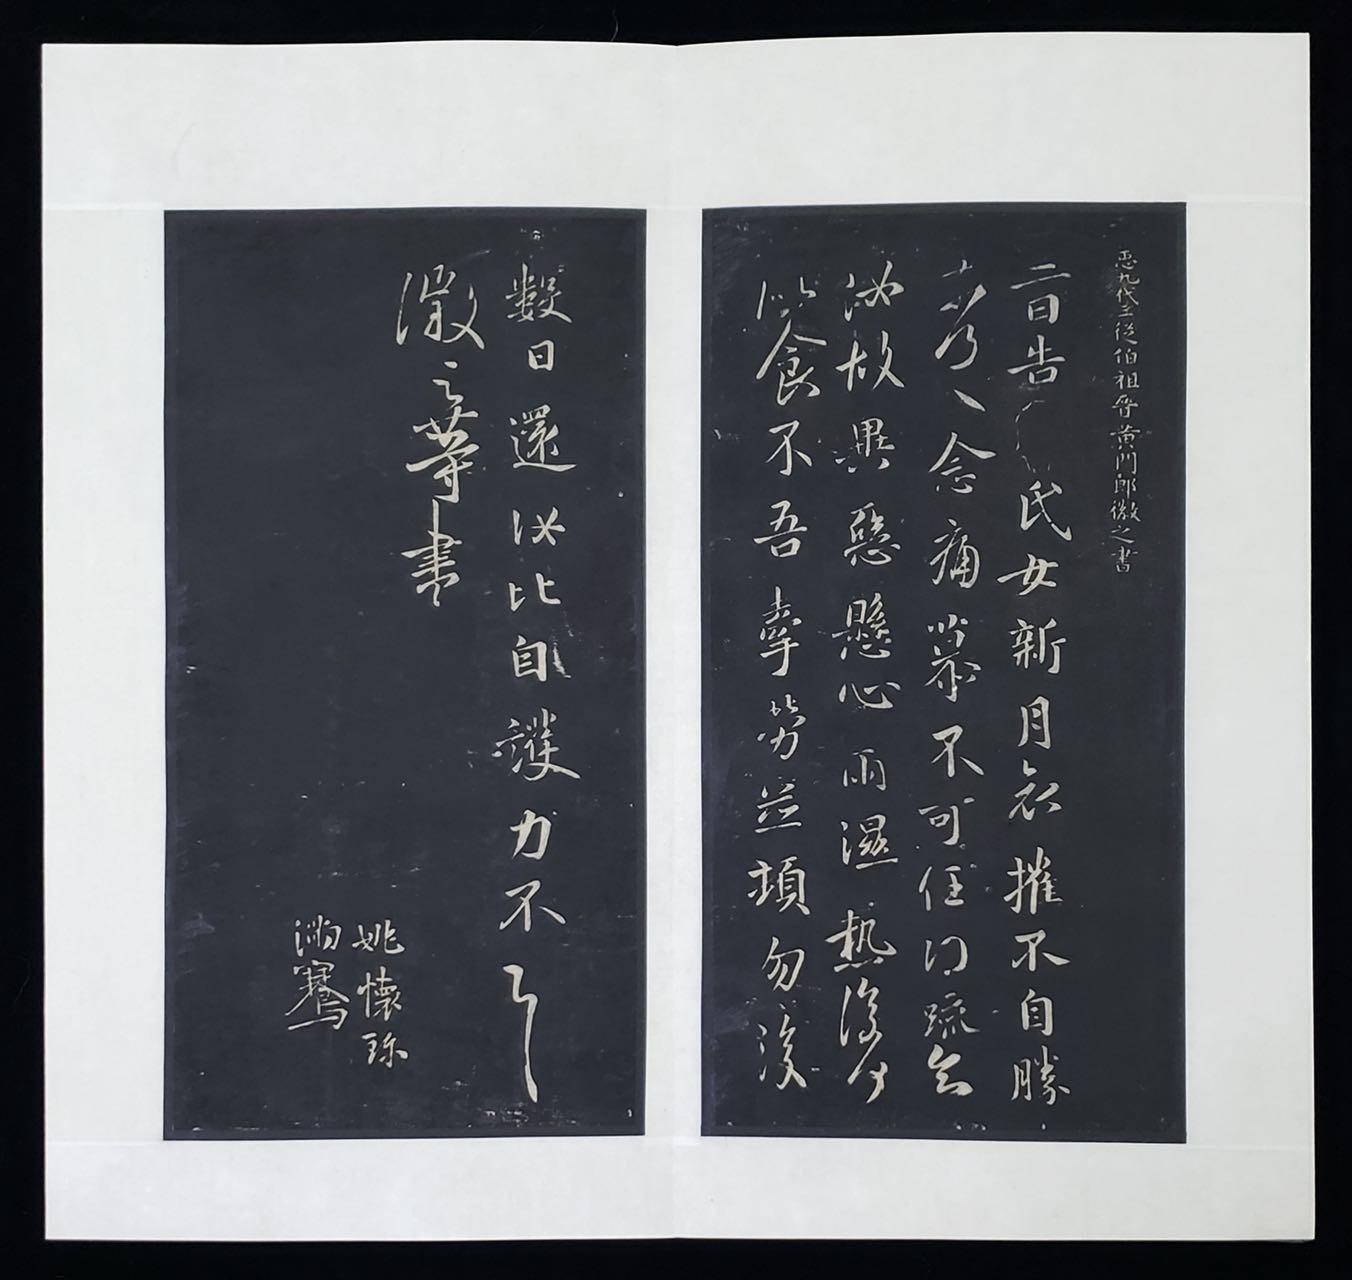 𢘑九代三從伯祖晉黃門郎徽之書
二日告氏女新月哀摧不自勝
奈何奈何念痛慕不可任得疏知
汝故異惡懸心雨濕熱復何
似食不吾牽勞並頓勿復
數日還汝比自護力不具
徽之等書
姚懷珍
滿騫